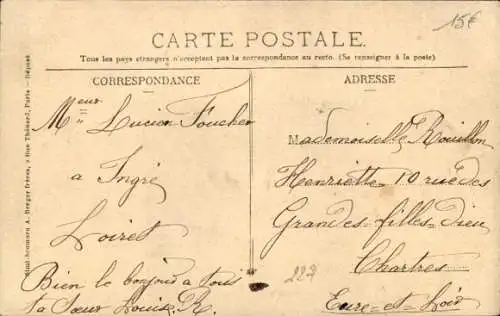 15€
CARTE POSTALE.
Tous les pays étrangers n'acceptent pas la correspondance au recto. (Se renseigner à la poste).
CORRESPONDANCE
Mr eur Lucien Foucher
a Ingré
Loiret
Bien le bonjour a tous
ta Sœur Louise R.
ADRESSE
Mademoiselle Rouillon
Henriette 10 rue des
Grandes-filles-Dieu
Chartres
Eure-et-Loir
227
A. Breger frères, 9 Rue Thénard, Paris — Déposé